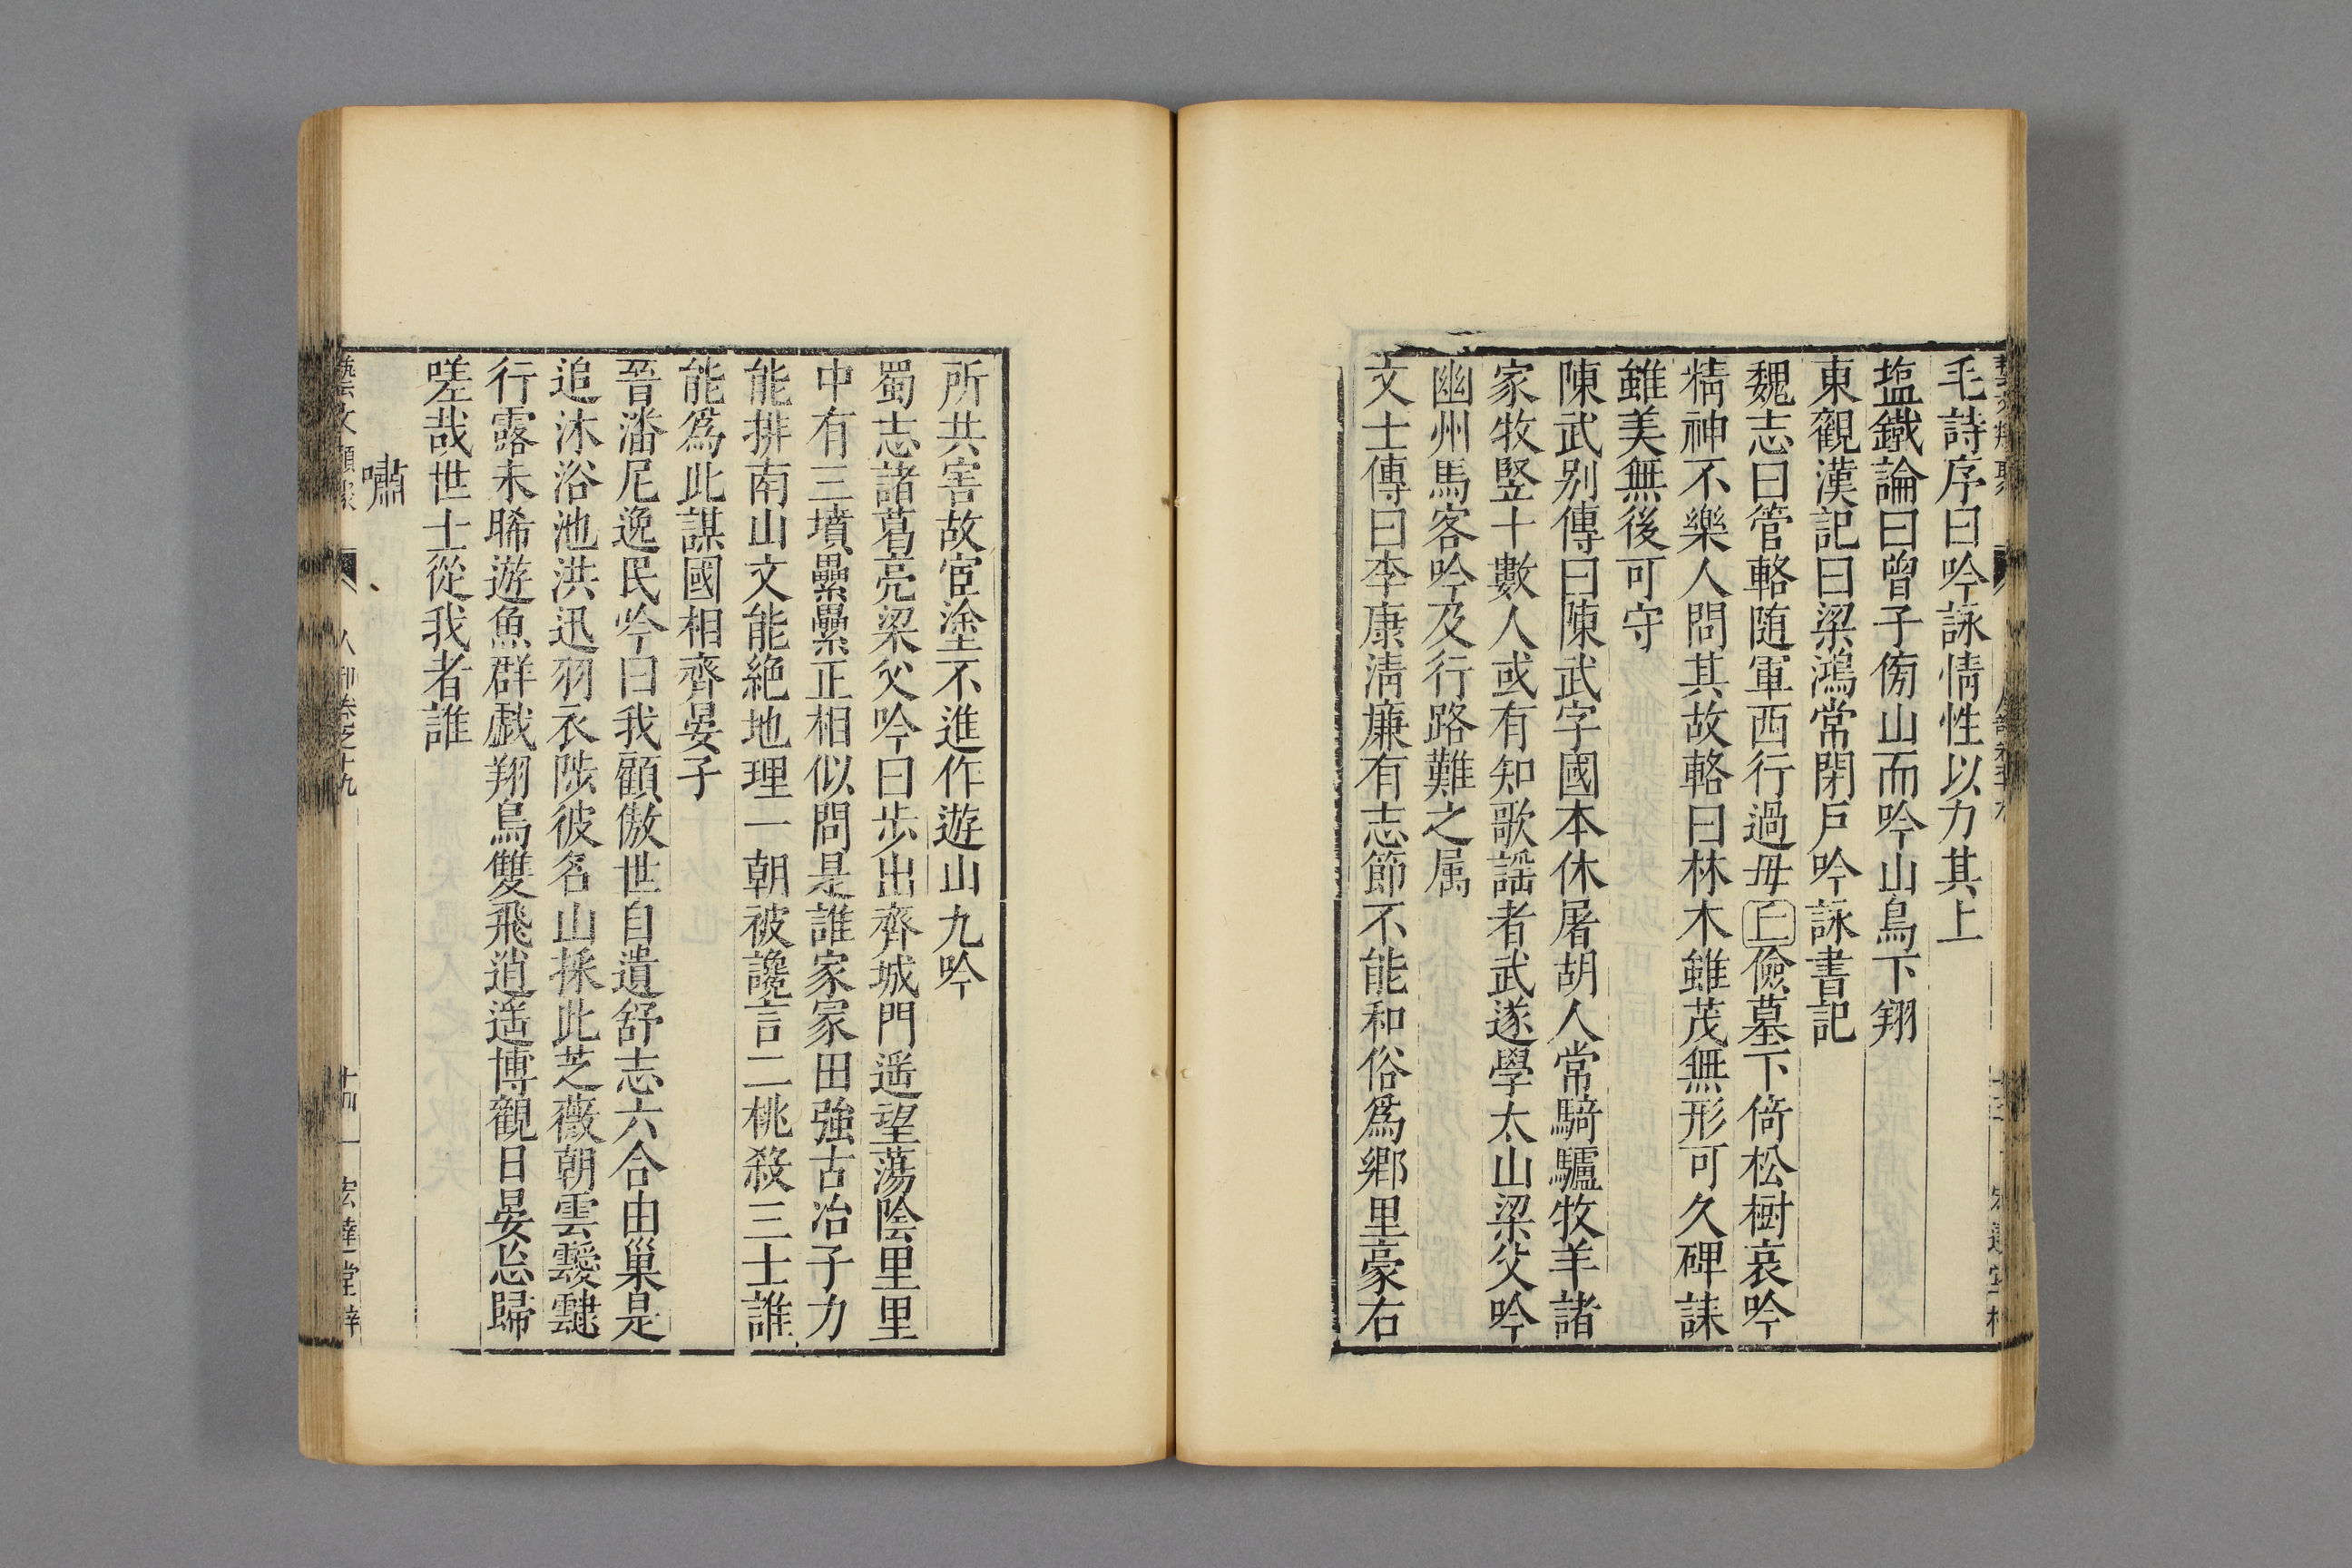 毛詩序曰吟詠情性以力其上
塩鐵論曰曾子傍山而吟山鳥下翔
東觀漢記曰梁鴻常閉戶吟詠書記
魏志曰管輅随軍西行過毋丘儉墓下倚松樹哀吟
精神不樂人問其故輅曰林木雖茂無形可久碑誄
雖美無後可守
陳武别傳曰陳武字國本休屠胡人常騎驢牧羊諸
家牧竪十數人或有知歌謡者武遂學太山梁父吟
幽州馬客吟及行路難之属
文士傳曰李康清廉有志節不能和俗爲鄉里豪右
所共害故宦塗不進作遊山九吟
蜀志諸葛亮梁父吟曰步出齊城門遥望蕩陰里里
中有三墳纍纍正相似問是誰家冢田強古冶子力
能排南山文能絶地理一朝被讒言二桃殺三士誰
能爲此謀國相齊晏子
晉潘尼逸民吟曰我顧傲世自遺舒志六合由巢是
追沐浴池洪迅羽衣陟彼名山採此芝薇朝雲靉靆
行露未晞遊魚群戯翔鳥雙飛逍遥博觀日晏忘歸
嗟哉世士從我者誰
嘯